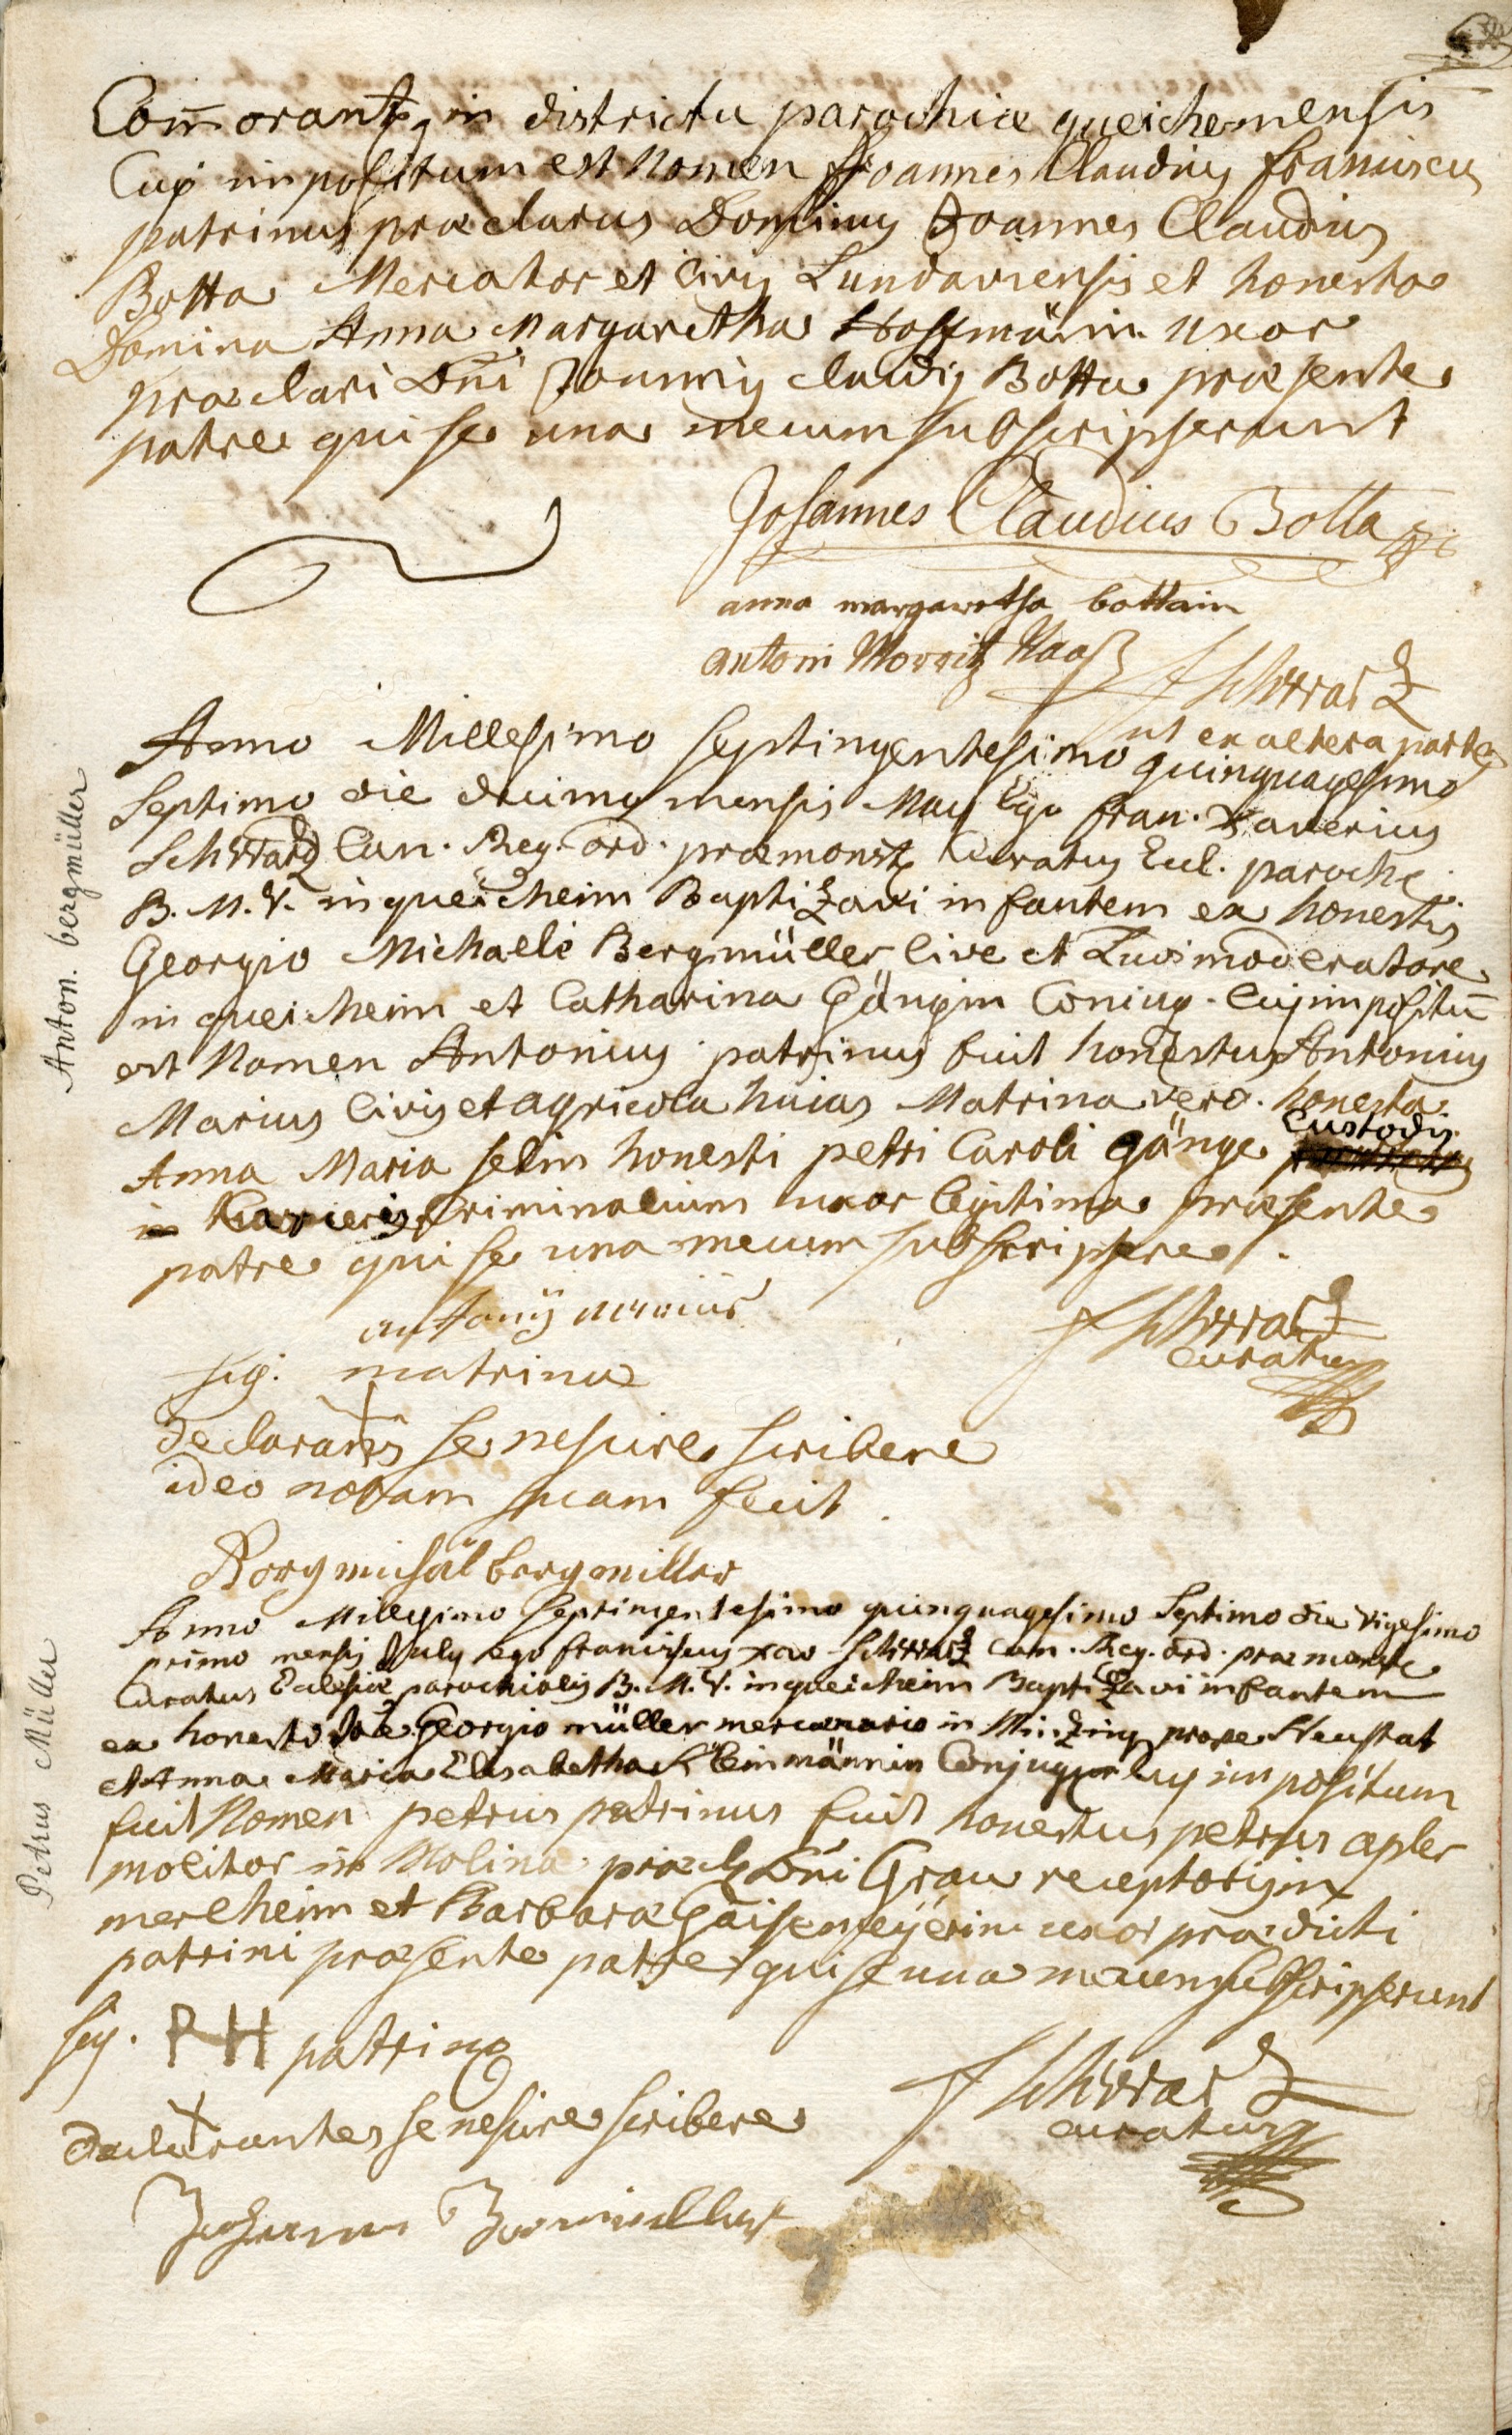 Com̄orant in districtu parochiæ queichemensis
Cuj impositum est Nomen Joannes Claudius franciscus
patrinus præclarus Dominus Joannes Claudius
Botta Mercator et Civis Landaviensis et honesta
Domina Anna Margaretha Hoffmänin uxor
præclari Dñi Joannis Claudij Botta præsente
patre qui se una mecum subscripserunt
Johannes Claudius Botta
anna margaretha bottain
antoni Morritz Haaß
FSchwartz
ut ex altera parte
Anno Millesimo septingentesimo quinquagesimo
Septimo die decima mensis May Ego fran. Xaverius
Schwartz Can. Reg. ord. præmonst Curatus Eccl. paroch.
B. M. V. in queicheim Baptizavi infantem ex honestis
Georgio Michaele Bergmüller Cive et Ludimoderatore
in queicheim et Catharina Gängin Coniug. Cuj impositū
est Nomen Antonius patrinus fuit honestus Antonius
Marius Civis et agricola huias Matrina vero honesta
Anna Maria selin honesti petri Caroli gänge Custodis
Carceris Criminalium uxor legitima præsente
patre qui se una mecum subscripsere.
antonÿ marius
FSchwartz
curatus
sig. matrina
declarans se nescire scribere
ideo notam suam fecit.
Görg michäl bergmiller
Anton. bergmüller
Anno Millesimo septingentesimo quinquagesimo Septimo die vigesimo
primo mensis July ego franciscus xav Schwartz Can. Reg. ord. præmonst
Curatus Eclesiæ parochialis B. M. V. in queicheim Baptizavi infantem
ex honesto Joē Georgio müller mercenario in Minzing prope Neustat
et Anna Maria Elisabetha Kleinmännin Conjug cuj impositum
fuit Nomen petrus patrinus fuit honestus petrus apler
molitor in Molina præcl Dñi Grau receptoris in
merlheim et Barbara Gaisemeÿerin uxor prædicti
patrini præsente patre qui se una mecum subscripserunt
sig. PH patrinq
FSchwartz
curatus
declarantes se nescire scribere
Petrus Müller